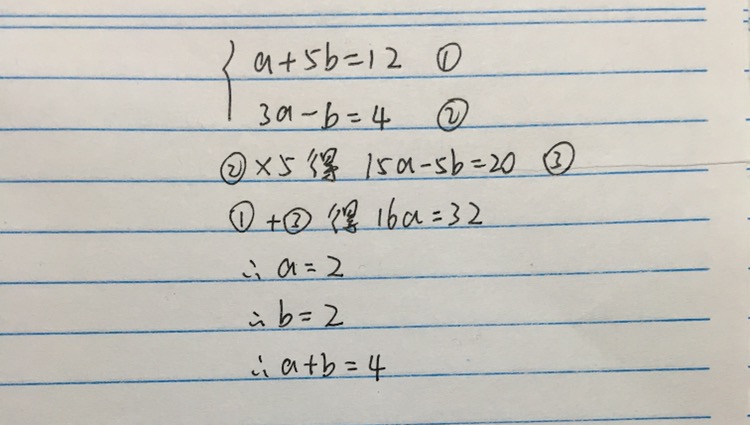 { a+5b=12 ①
3a-b=4 ②
②×5 得 15a-5b=20 ③
①+③ 得 16a=32
∴ a=2
∴ b=2
∴ a+b=4